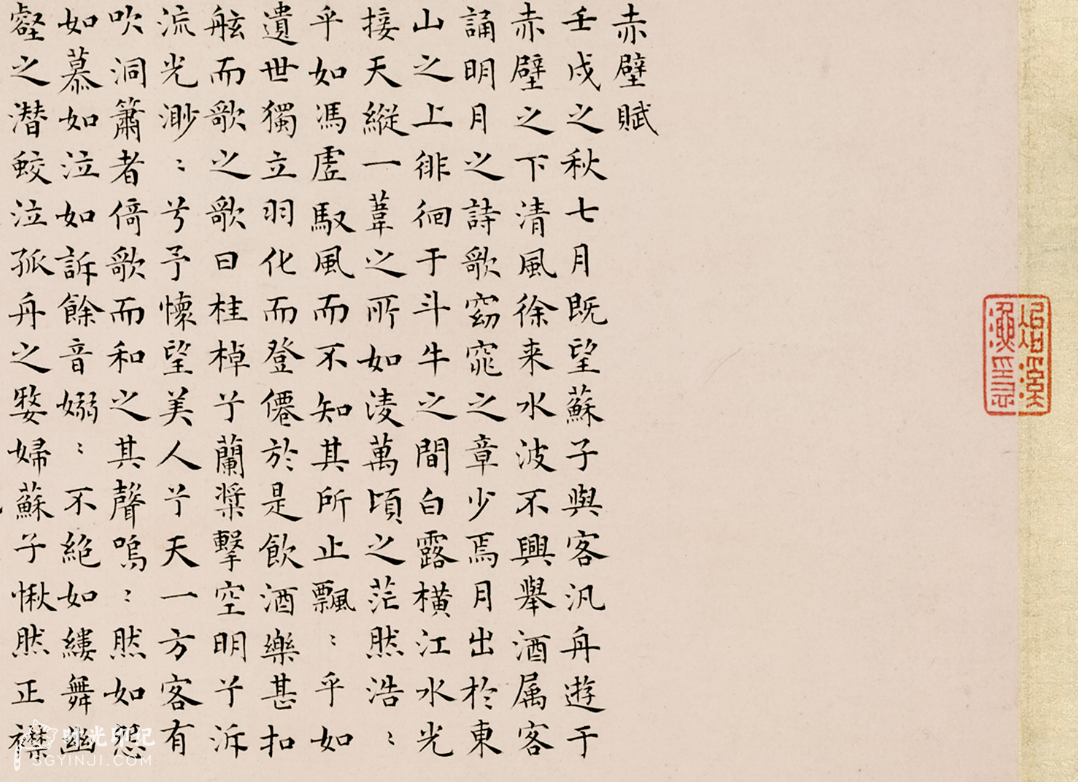 赤壁賦
壬戌之秋七月既望蘇子與客汎舟遊于
赤壁之下清風徐来水波不興舉酒属客
誦明月之詩歌窈窕之章少焉月出於東
山之上徘徊于斗牛之間白露橫江水光
接天縱一葦之所如淩萬頃之茫然浩〻
乎如馮虗馭風而不知其所止飄〻乎如
遺世獨立羽化而登僊於是飲酒樂甚扣
舷而歌之歌曰桂棹兮蘭槳擊空明兮泝
流光渺〻兮予懷望美人兮天一方客有
吹洞簫者倚歌而和之其聲嗚〻然如怨
如慕如泣如訴餘音嫋〻不絶如縷舞幽
壑之潜蛟泣孤舟之嫠婦蘇子愀然正襟
时光印记
SGYINJI.COM